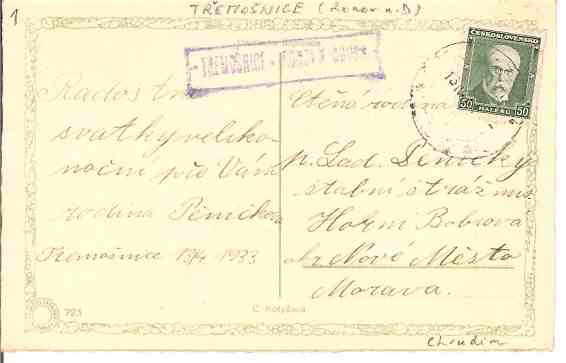 1
TŘEMOŠNICE (Ronov n.D)
TŘEMOŠNICE -
ČESKOSLOVENSKO
50 50
HALÉŘŮ
Radostné
svatky veliko-
noční pře Vám
rodina Pěničkova
Třemošnice 13/4 1933
Ctěná rodina
p. Lad. Pěnický
stabní strážmis.
Horní Bobrova
Nové Město
Morava.
725
Chrudim